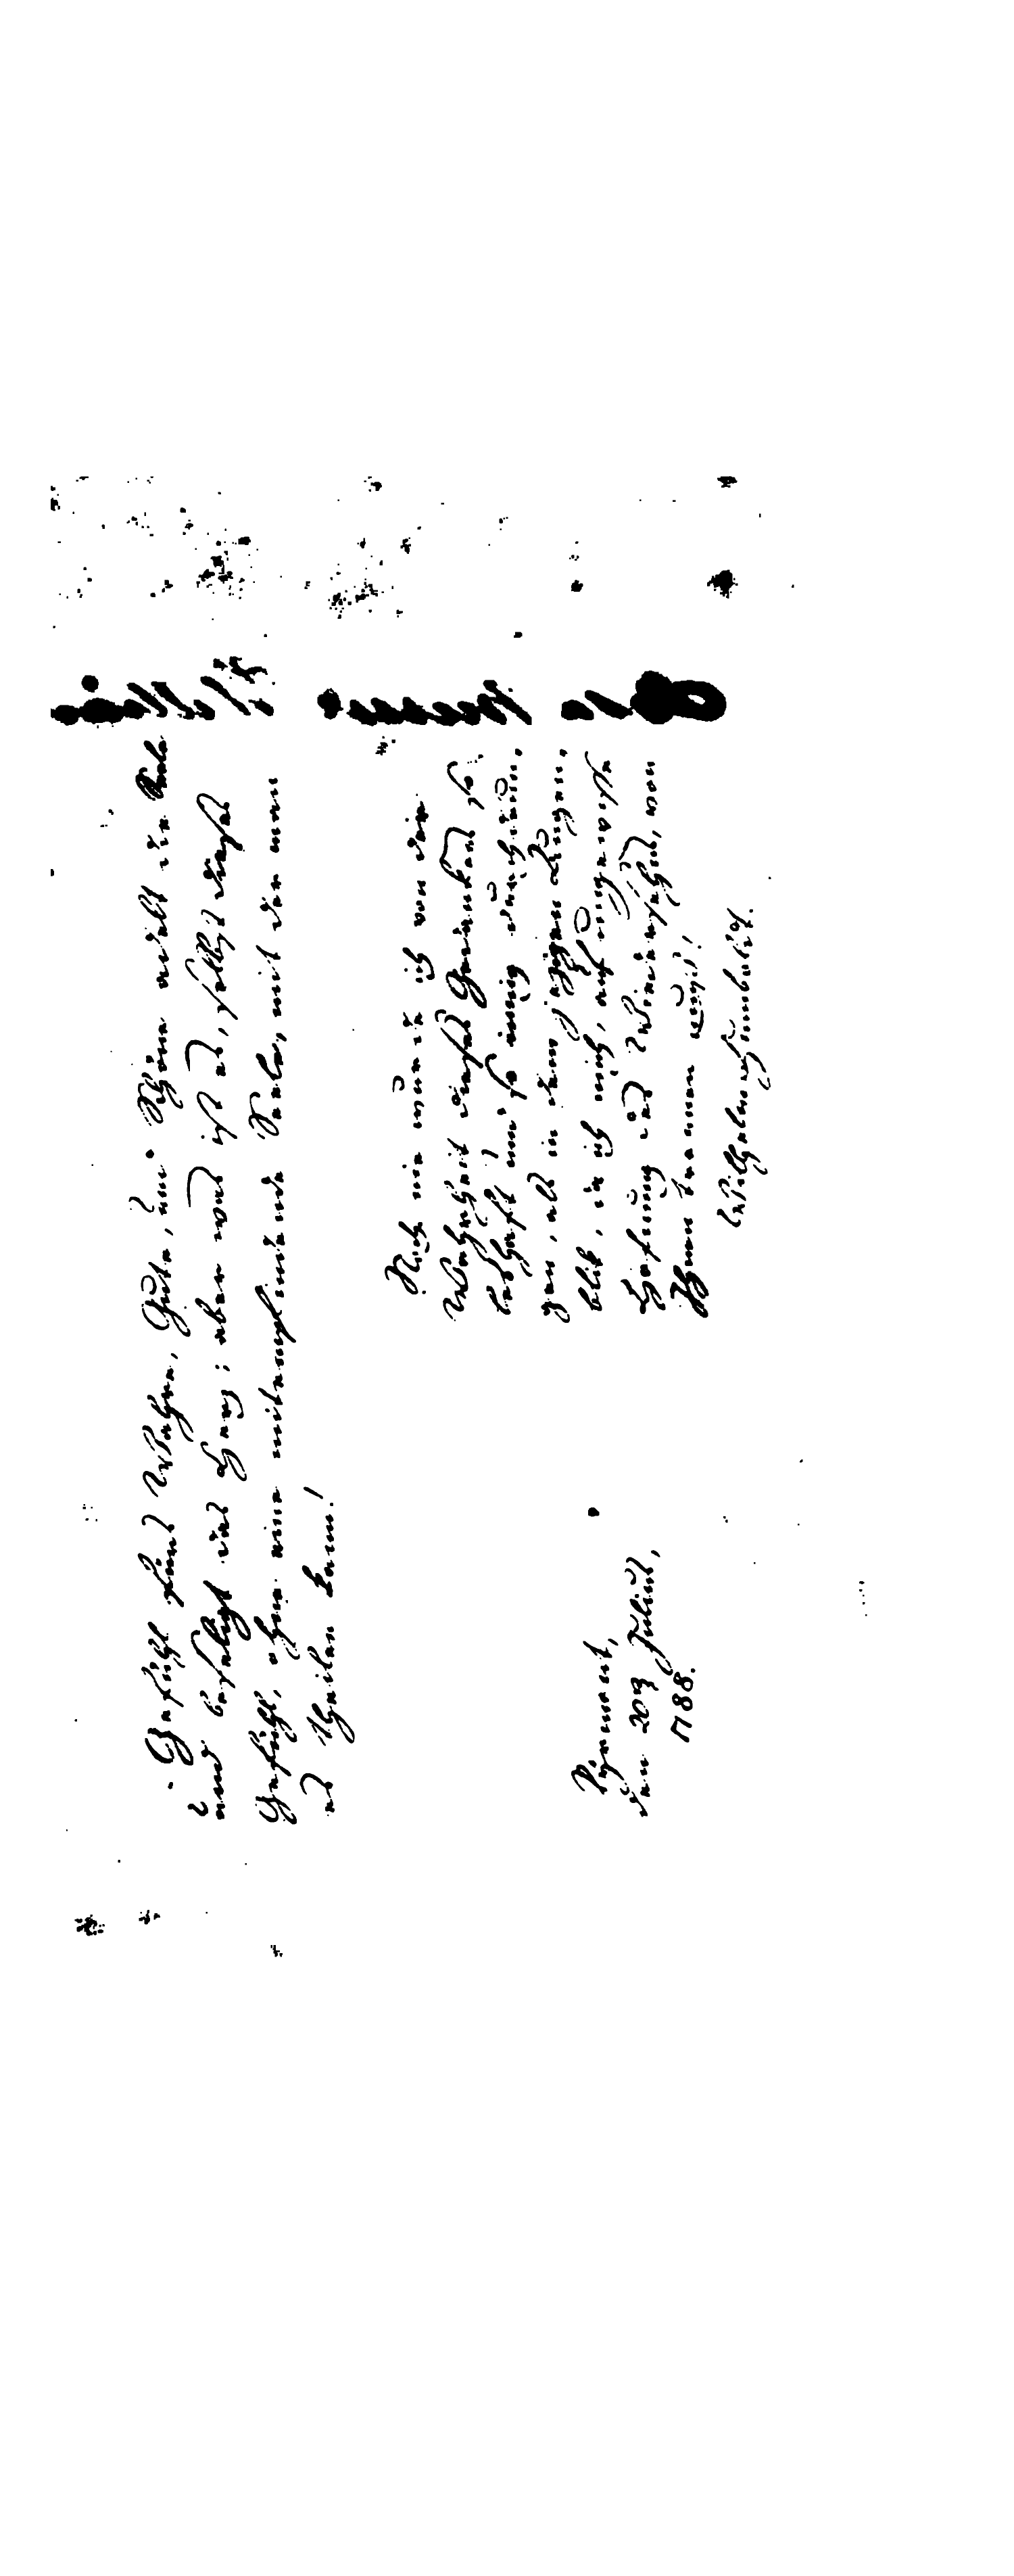 Gefühl fürs Wahre, Gute, und Schöne adelt die Seele
und beseligt das Herz; aber was ist es, selbst dieses
Gefühl, ohne eine mitempfindende Seele, mit der man
es theilen kann!
Noch nie wurde ich von der
Wahrheit dieses Gedankens so
lebhaft und so innig durchdrun,
gen, als in dem jezigen Augen,
blik, da ich mich, auf ungewisse
Hofnung des Wiedersehens, von
Ihnen trennen muß!
Pyrmont,
den 20 Julius,
1788.